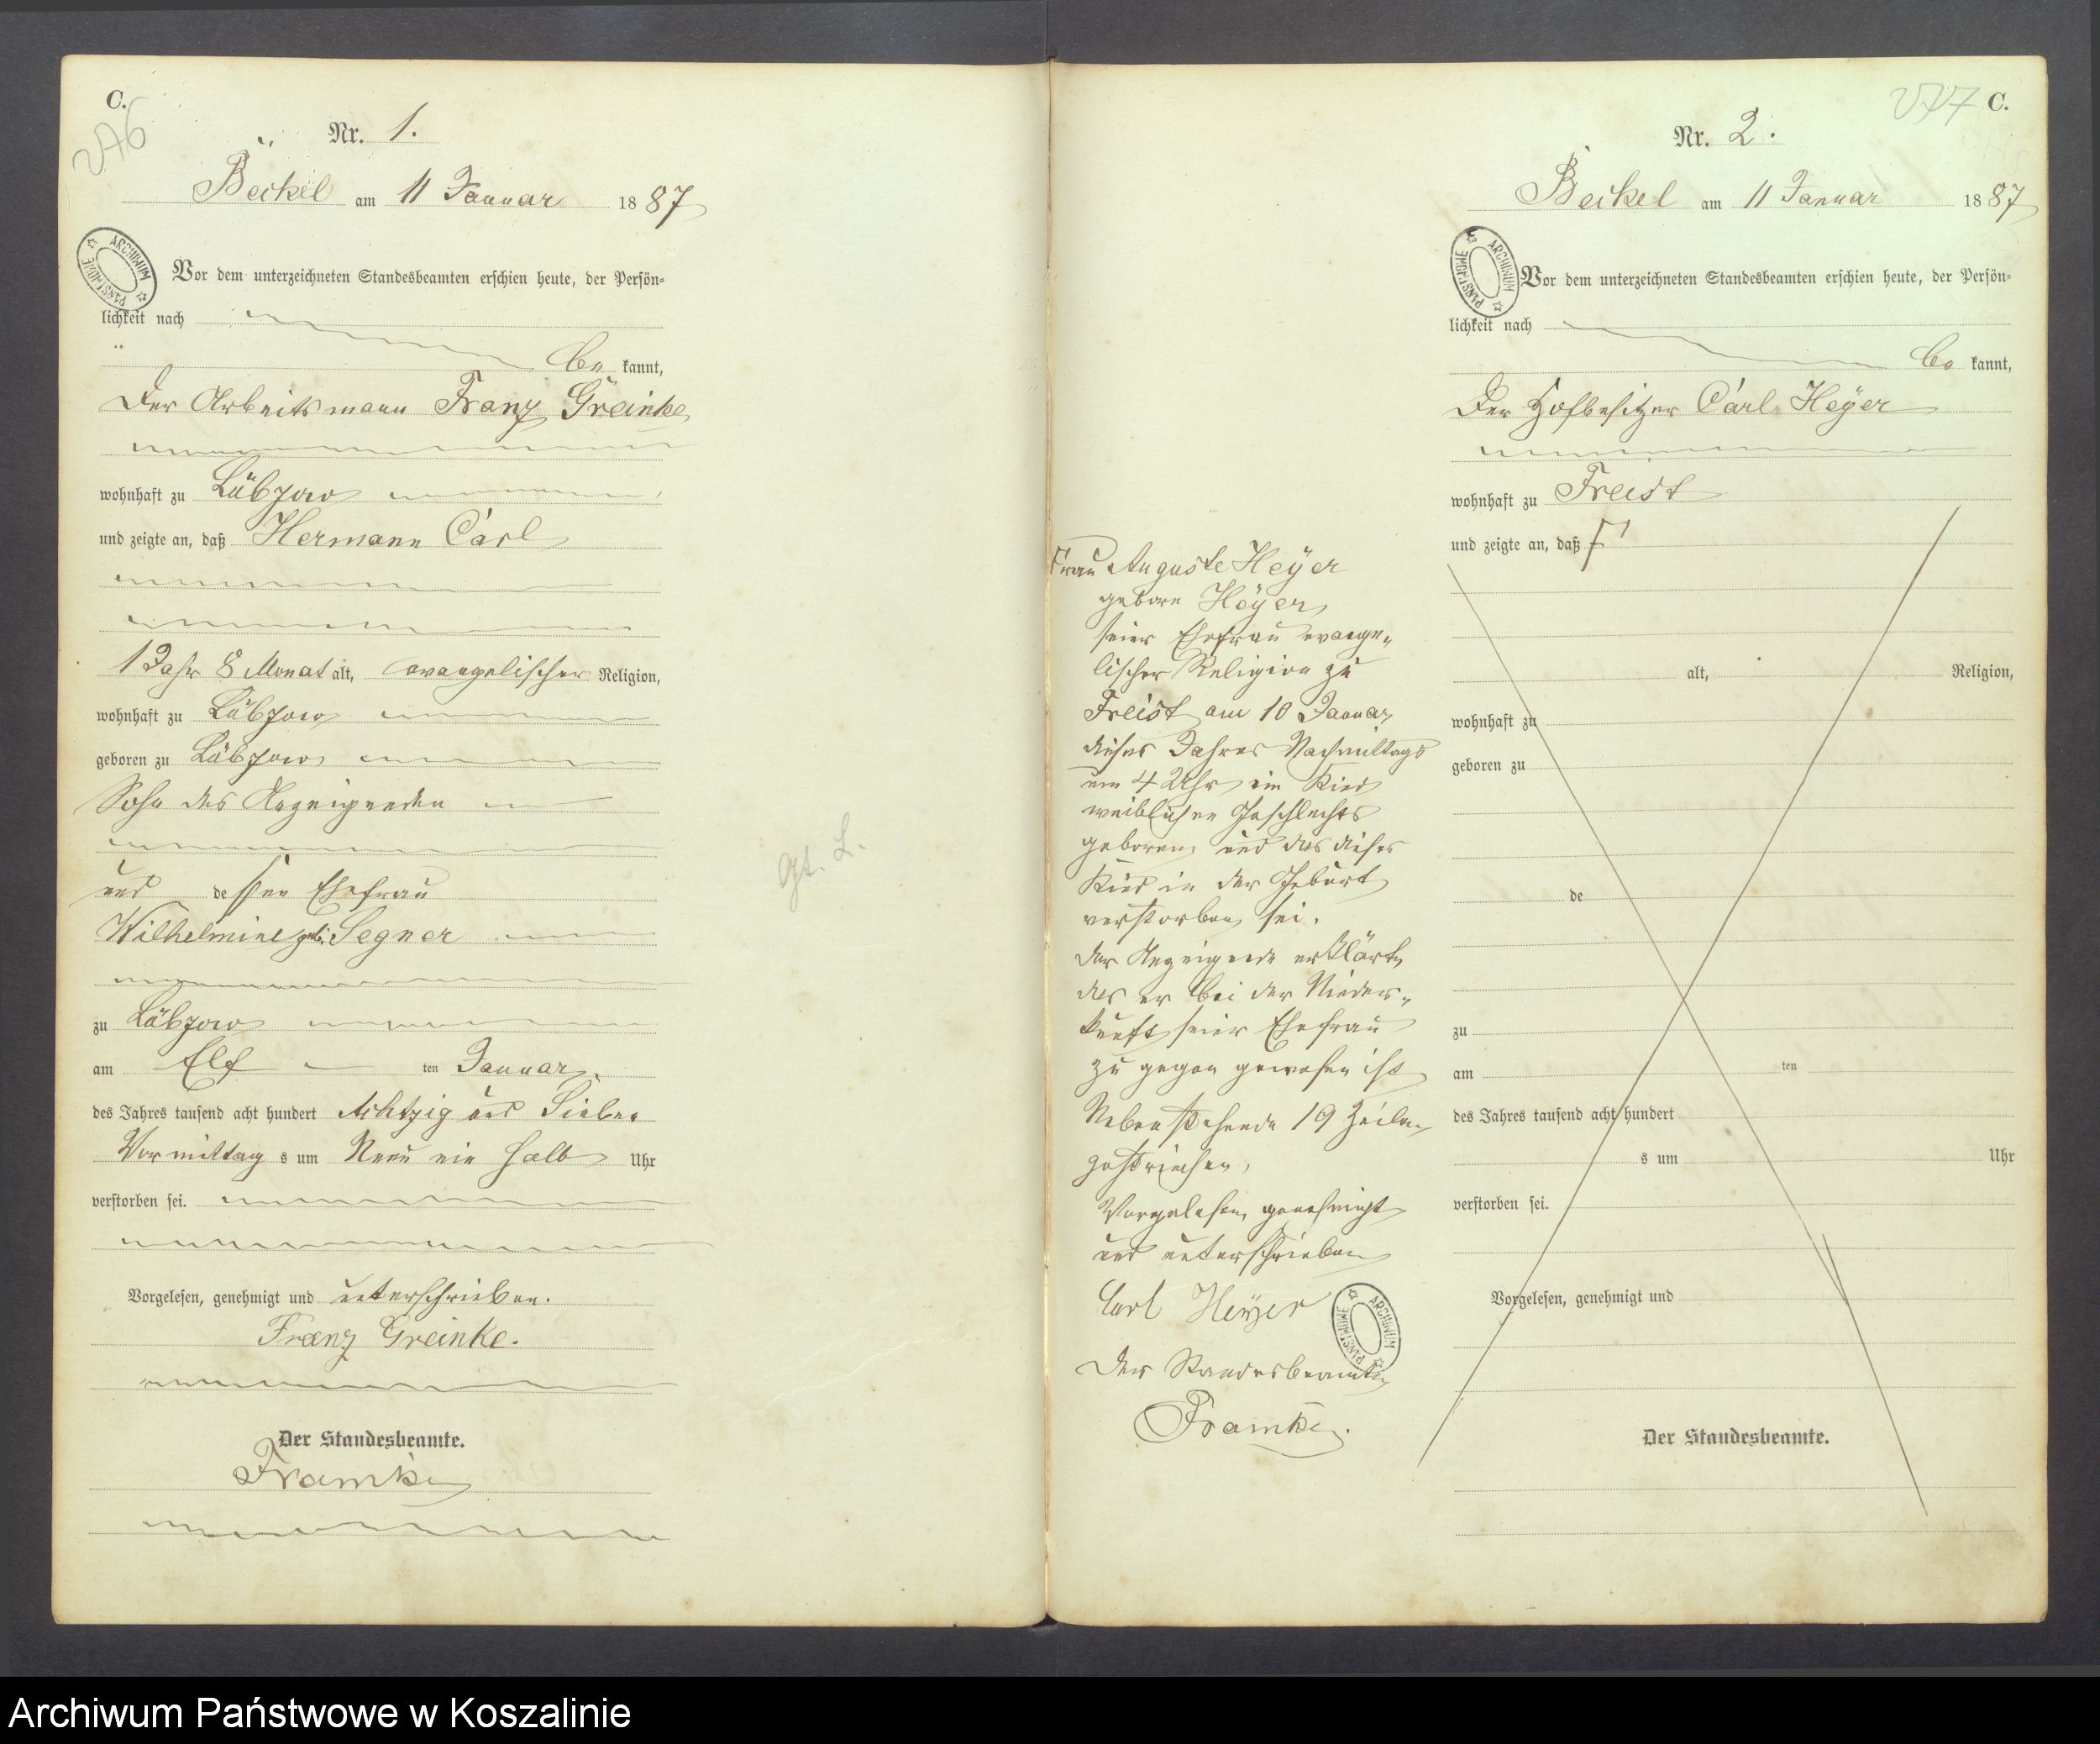 C.
276
Nr. 1.
Beckel am 11 Januar 1887
ARCHIWUM PAŃSTWOWE
Vor dem unterzeichneten Standesbeamten erschien heute, der Persön-
lichkeit nach
be kannt,
Der Arbeitsmann Franz Greinke
wohnhaft zu Lübzow
und zeigte an, daß Hermann Carl
1 Jahr 8 Monat alt, evangelischer Religion,
wohnhaft zu Lübzow
geboren zu Lübzow
Sohn des Anzeigenden
und dessen Ehefrau
Wilhelmine geb. Segner
zu Lübzow
am Elf ten Januar
des Jahres tausend acht hundert Achtzig und Sieben
Vormittag s um Neun ein halb Uhr
verstorben sei.
Vorgelesen, genehmigt und unterschrieben.
Franz Greinke.
Der Standesbeamte.
Framke
gt. L.
277 C.
Nr. 2.
Beckel am 11 Januar 1887
ARCHIWUM PAŃSTWOWE
Vor dem unterzeichneten Standesbeamten erschien heute, der Persön-
lichkeit nach
be kannt,
Der Hofbesitzer Carl Heÿer
wohnhaft zu Freist
und zeigte an, daß
Frau Auguste Heÿer
geborn Heÿer
seiner Ehefrau evange-
lischer Religion zu
Freist am 10 Januar
dieses Jahres Nachmittags
um 4 Uhr ein Kind
weiblichen Geschlechts
geboren und das dieses
Kind in der Geburt
verstorben sei.
Der Anzeigende erklärte
das er bei der Nieder-
kunft seiner Ehefrau
zu gegen gewesen ist
Nebenstehende 19 Zeilen
gestrichen,
Vorgelesen, genehmigt
und unterschrieben
Carl Heÿer
ARCHIWUM PAŃSTWOWE
Der Standesbeamte
Framke.
alt, Religion,
wohnhaft zu
geboren zu
de
zu
am ten
des Jahres tausend acht hundert
s um Uhr
verstorben sei.
Vorgelesen, genehmigt und
Der Standesbeamte.
Archiwum Państwowe w Koszalinie